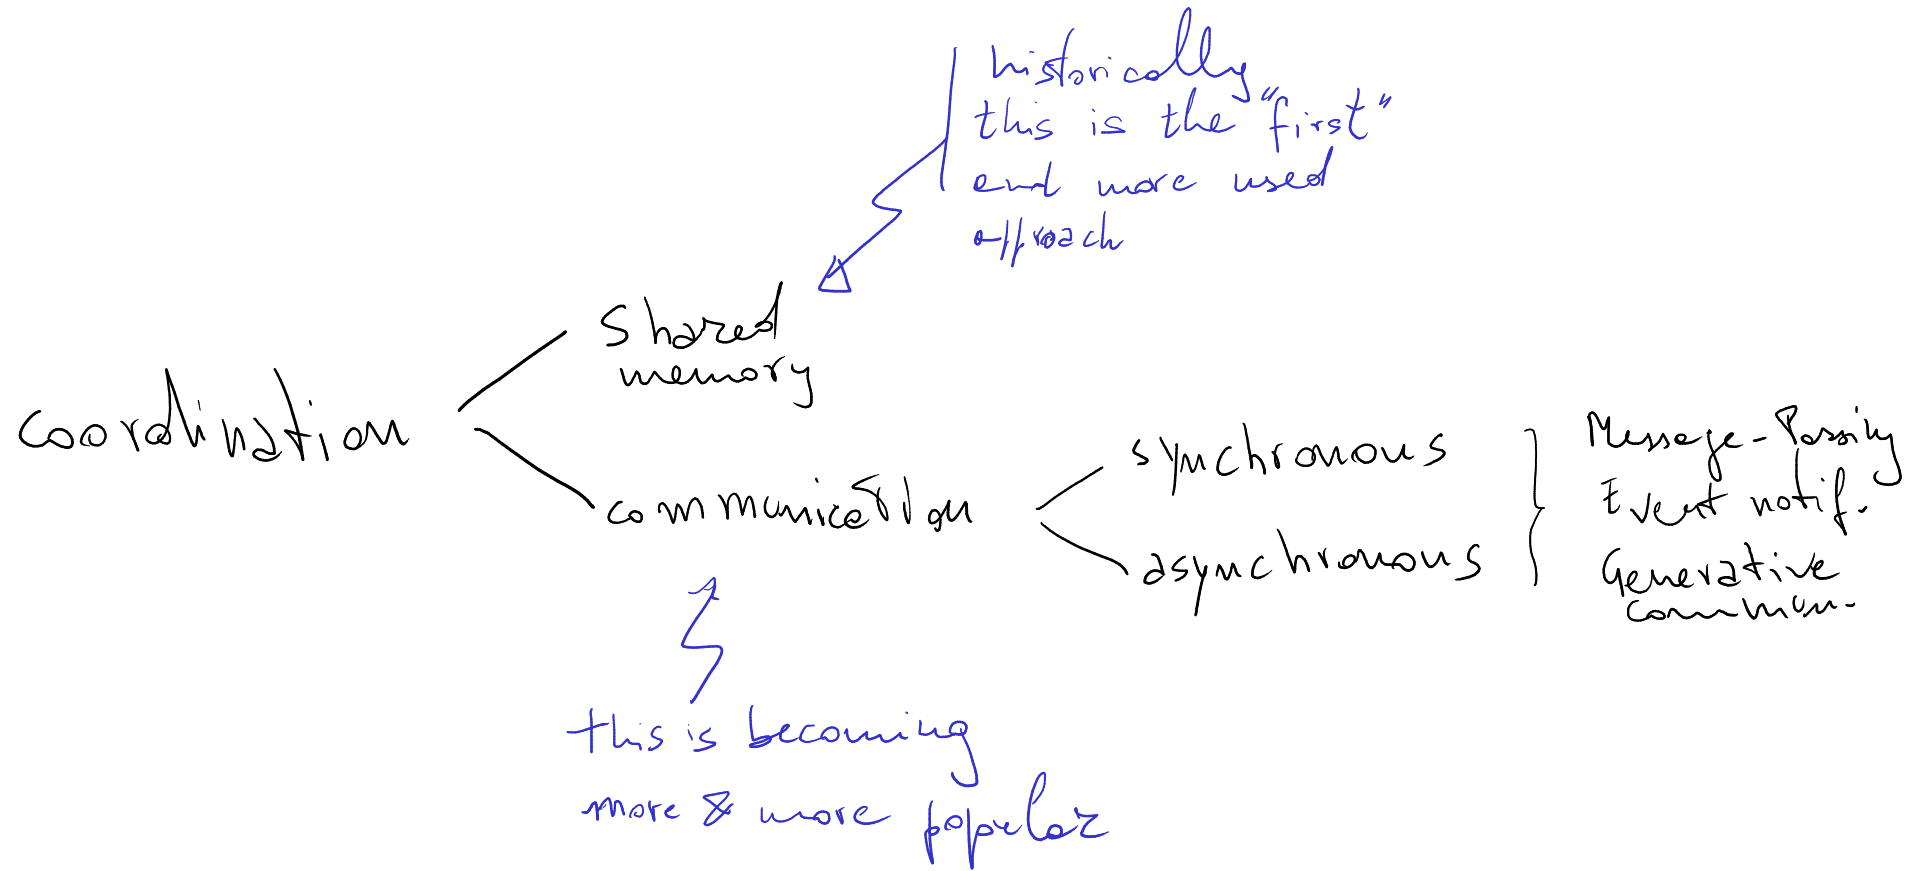 historically
this is the "first"
and more used
approach
Shared
memory
coordination
communication
synchronous
asynchronous
Message-Passing
Event notif.
Generative
commun.
this is becoming
more & more popular